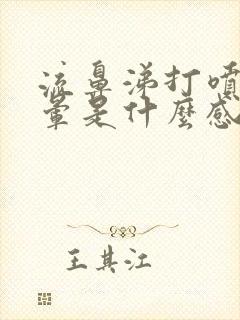 流鼻涕打噴
暈是什麼感
王其江